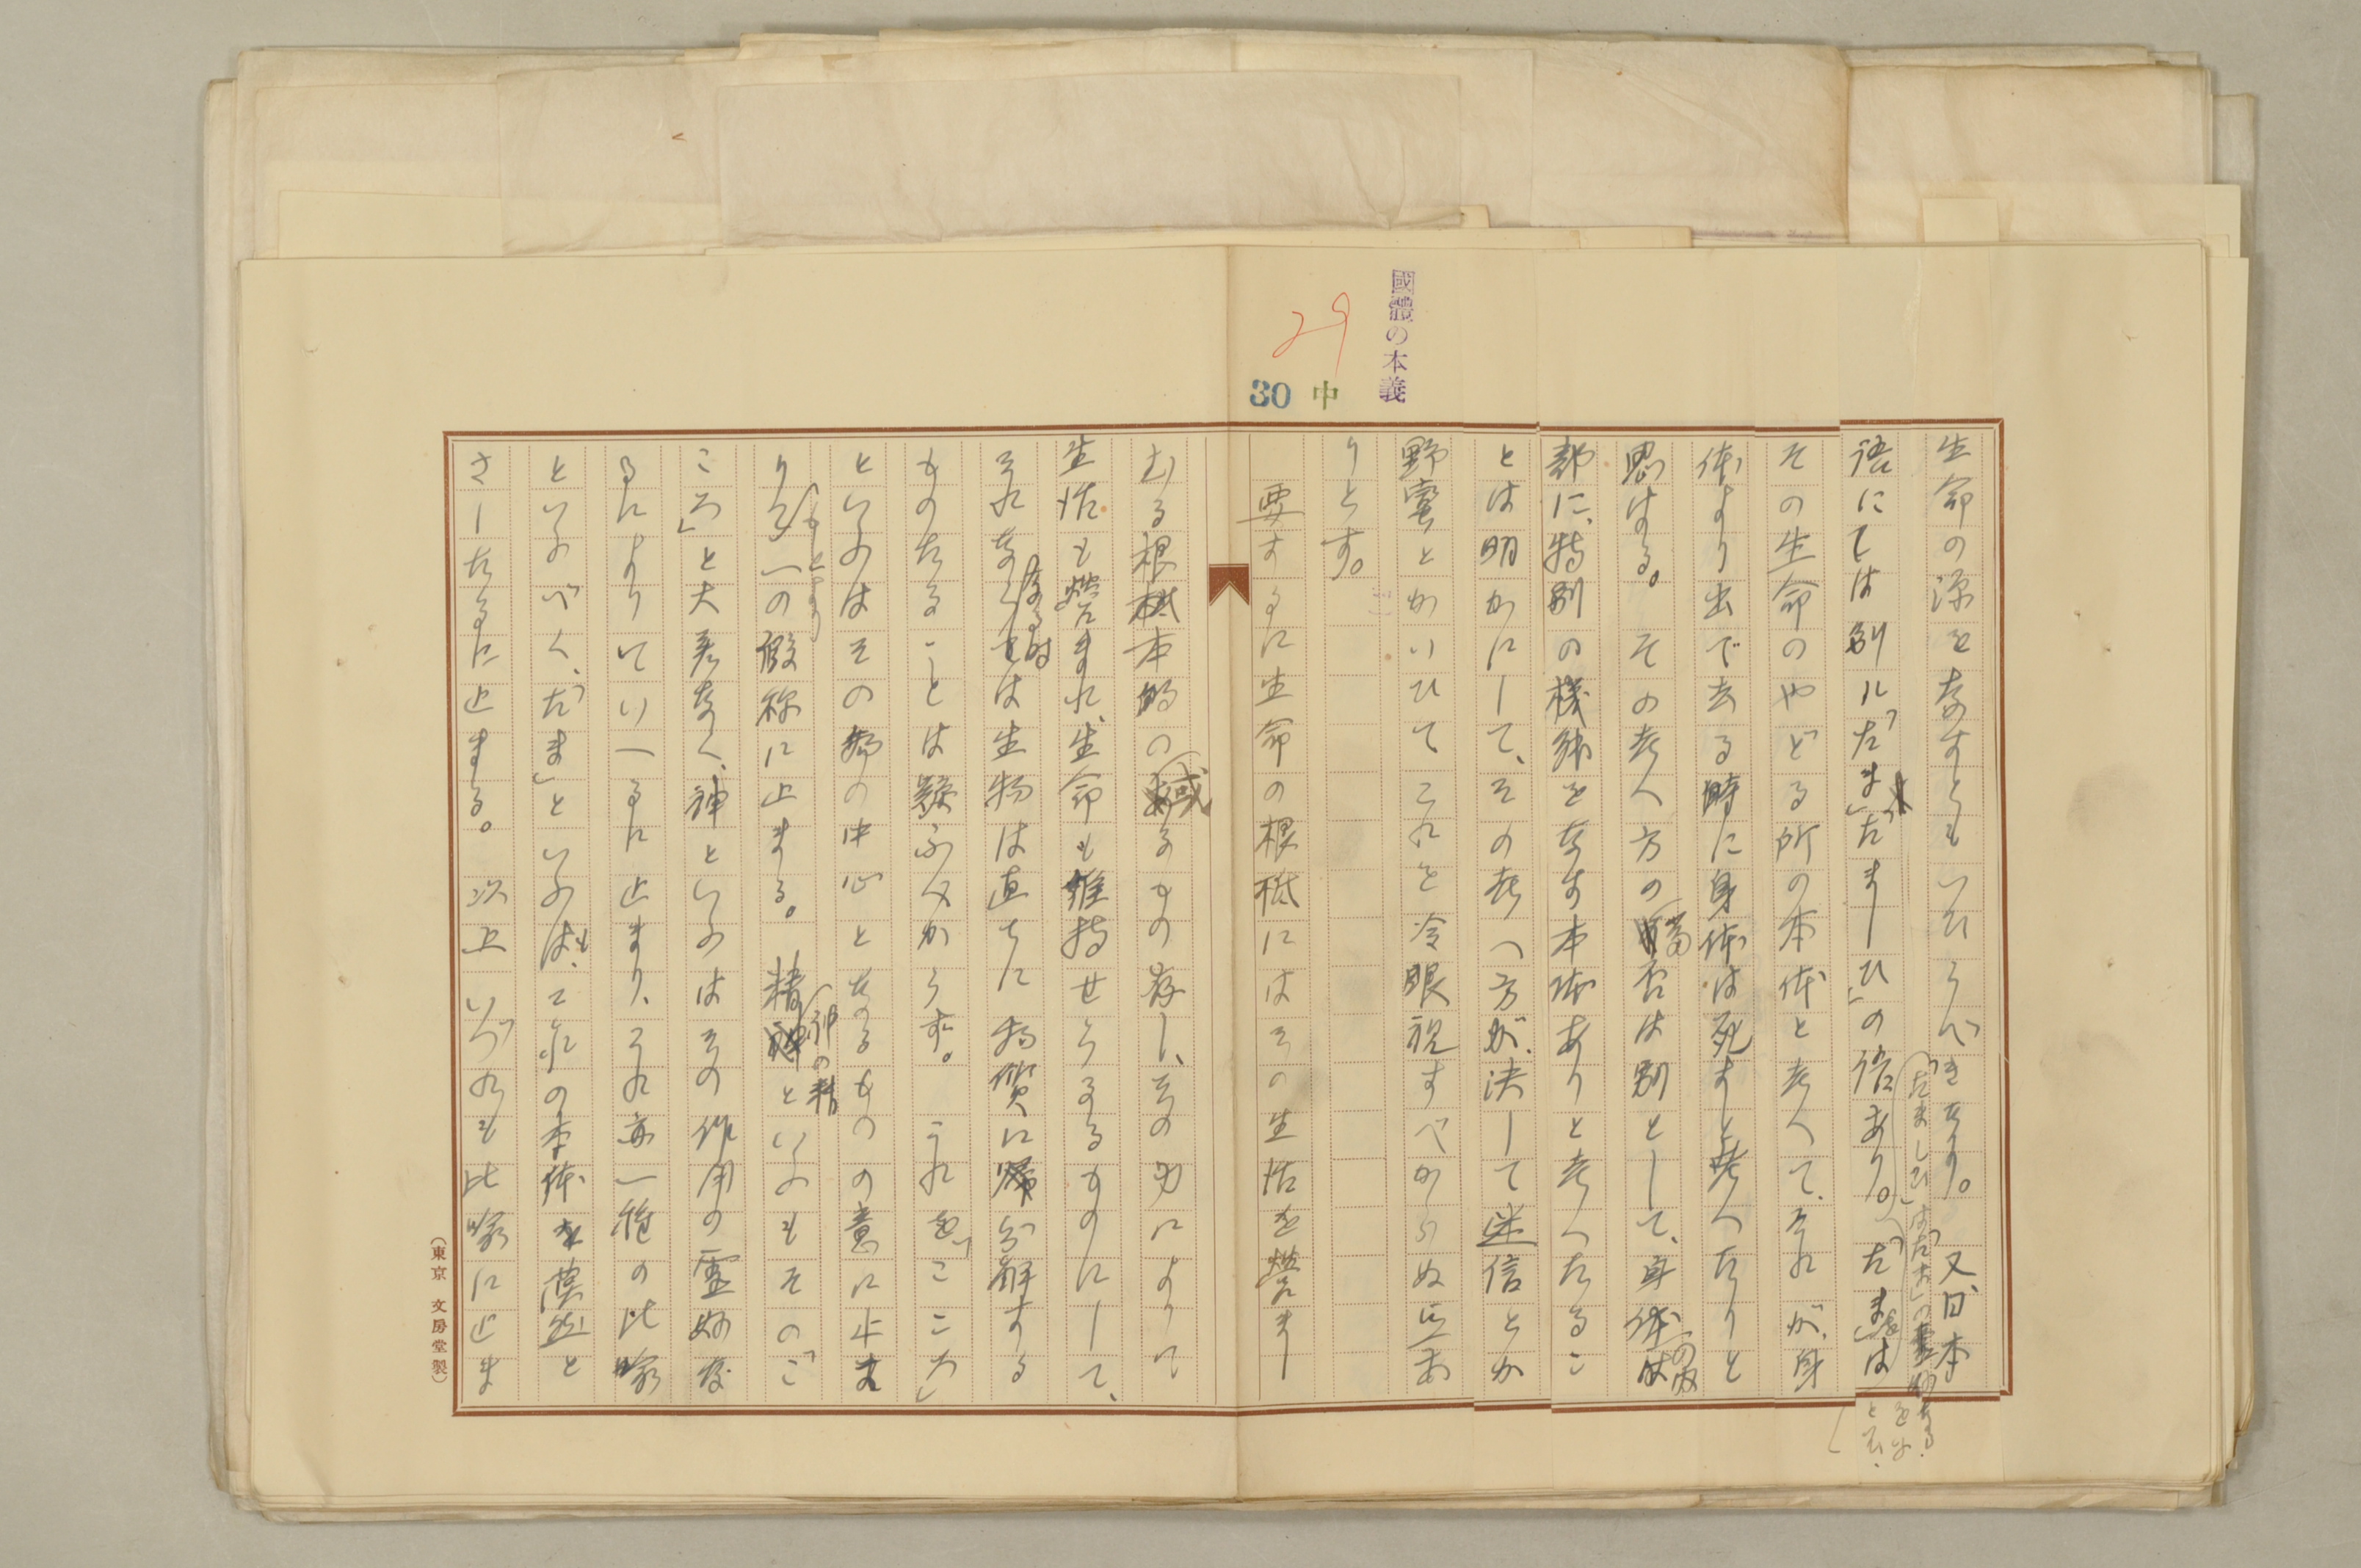 國體の本義
29
30 中
生命の源をなすともいひうべきなり。又、日本
語にては別に「たま」「たましひ」の信あり。「たま」は
その生命のやどる所の本体と考へて、それが、身
体より出で去る時に身体は死すと考へたりと
思はる。その考へ方の當否は別として、身体の内
部に、特別の様体をなす本体ありと考へたるこ
とは明かにして、その考へ方が、決して迷信とか
野蛮とかいひてこれを冷眼視すべからぬ点あ
りとす。
要するに生命の根柢にはその生活を営まし
むる根本的の或るもの存し、その力によりて
生活も営まれ、生命も維持せらるるものにして、
それなくなる時は生物は直ちに物質に分解する
ものたることは疑ふべからず。これを「こころ」
といふのはその物の中心となるものの意に止ま
り、もとより一の假称に止まる。精神といふもその「こ
ころ」と大差なく、神といふのはその作用の霊妙な
るによりていへるに止まり、それ亦一種の比喩
といふべく、「たま」といふも、これの本体を漠然と
さしたるに止まる。以上いづれも比喩に止ま
(東京 文房堂製)